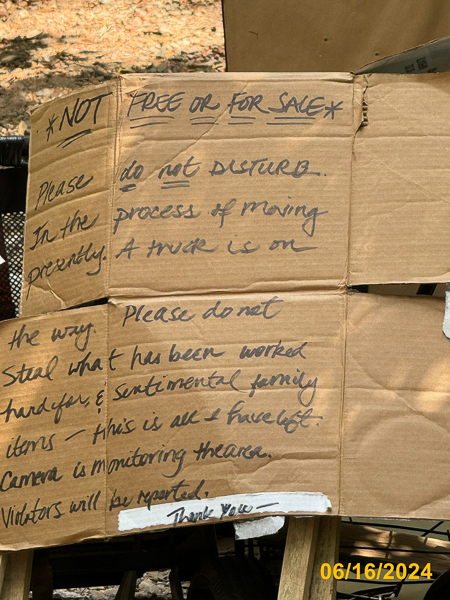 *NOT FREE OR FOR SALE*
Please do not DISTURB.
In the process of moving
presently. A truck is on
the way. Please do not
Steal what has been worked
hard for, & sentimental family
items — this is all I have left.
Camera is monitoring the area.
Violators will be reported.
Thank You —
06/16/2024